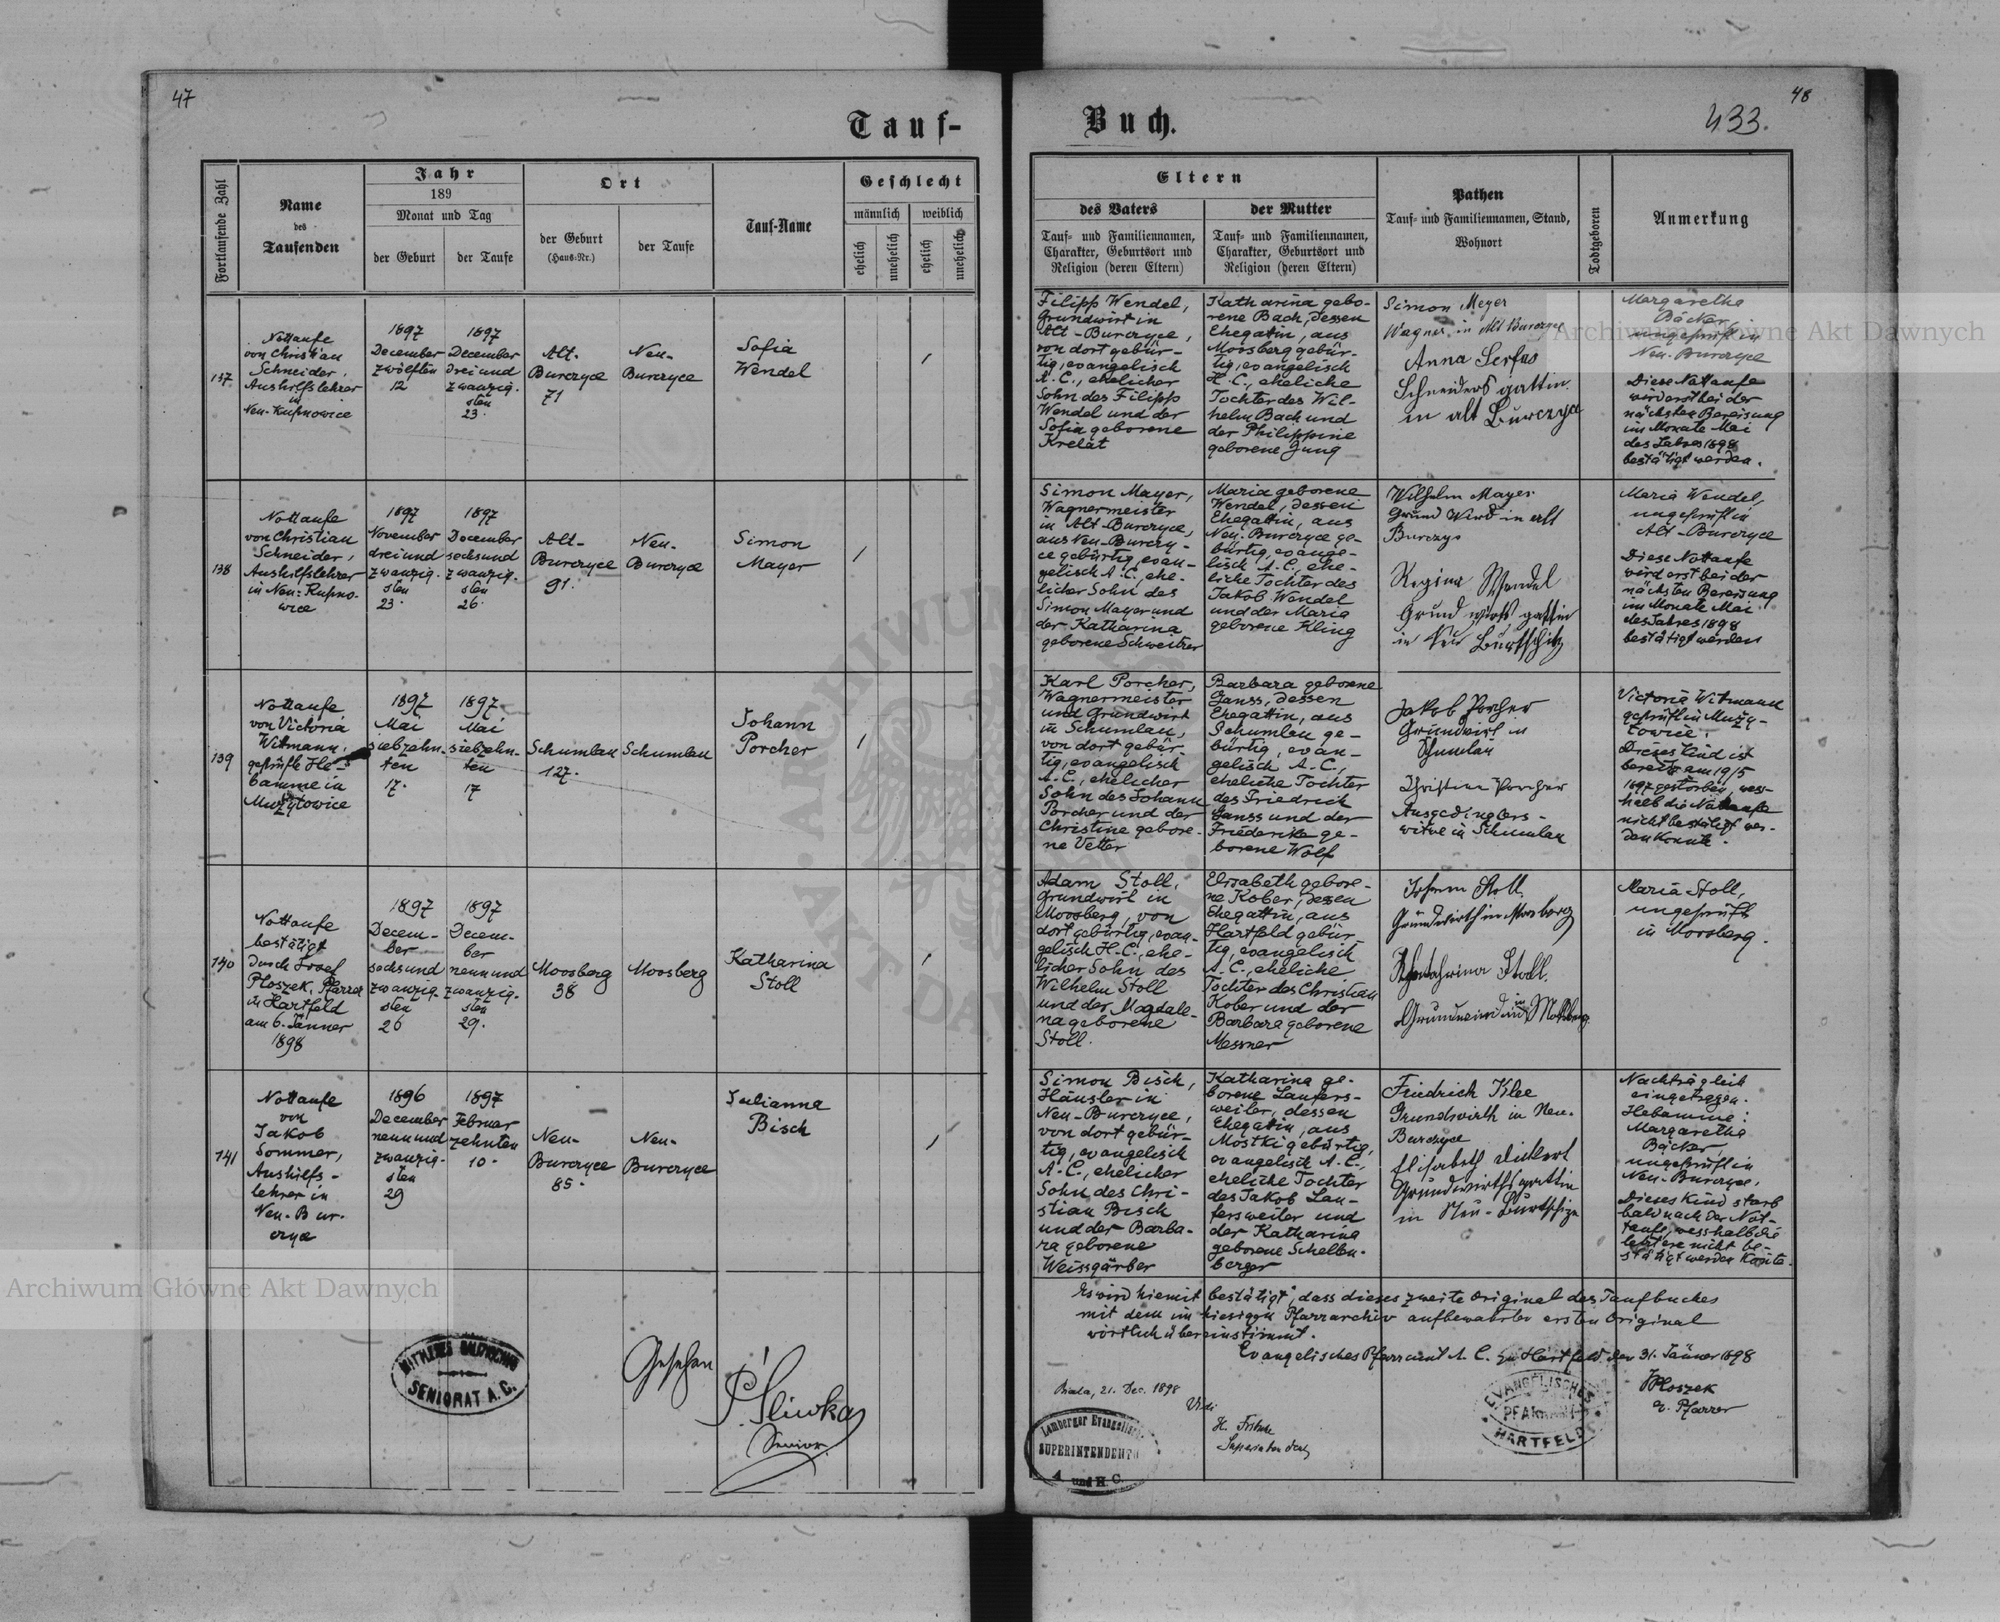 47
48
433.
Tauf-
Buch.
Fortlaufende Zahl
Name
des
Taufenden
Jahr
189
Monat und Tag
der Geburt
der Taufe
Ort
der Geburt
(Haus-Nr.)
der Taufe
Tauf-Name
Geschlecht
männlich
weiblich
ehelich
unehelich
ehelich
unehelich
Eltern
des Vaters
Tauf- und Familiennamen,
Charakter, Geburtsort und
Religion (deren Eltern)
der Mutter
Tauf- und Familiennamen,
Charakter, Geburtsort und
Religion (deren Eltern)
Pathen
Tauf- und Familiennamen, Stand,
Wohnort
Todtgeboren
Anmerkung
137
Nottaufe
von Christian
Schneider,
Aushilfslehrer
in
Neu-Kupnowice
1897
December
zwölften
12
1897
December
drei und
zwanzig-
sten
23.
Alt-
Burczyce
71
Neu-
Burczyce
Sofia
Wendel
Filipp Wendel,
Grundwirt in
Alt-Burczyce,
von dort gebür-
tig, evangelisch
A.C., ehelicher
Sohn des Filipp
Wendel und der
Sofia geborene
Krelat
Katharina gebo-
rene Bach, dessen
Ehegattin, aus
Moosberg gebür-
tig, evangelisch
H.C., eheliche
Tochter des Wil-
helm Bach und
der Philippine
geborene Jung
Simon Meyer
Wagner in Alt Burczyce
Anna Serfas
Schneiders gattin
in alt Burczyce
Margaretha
Bäcker,
ungeprüft in
Neu-Burczyce
Diese Nottaufe
wird erst bei der
nächsten Bereisung
im Monate Mai
des Jahres 1898
bestätigt werden.
138
Nottaufe
von Christian
Schneider,
Aushilfslehrer
in Neu-Kupno-
wice
1897
November
drei und
zwanzig-
sten
23.
1897
December
sechs und
zwanzig-
sten
26.
Alt-
Burczyce
91.
Neu-
Burczyce
Simon
Mayer
Simon Mayer,
Wagnermeister
in Alt-Burczyce,
aus Neu-Burczy-
ce gebürtig, evan-
gelisch A.C., ehe-
licher Sohn des
Simon Mayer und
der Katharina
geborene Schweitzer
Maria geborene
Wendel, dessen
Ehegattin, aus
Neu-Burczyce ge-
bürtig, evange-
lisch A.C., ehe-
liche Tochter des
Jakob Wendel
und der Maria
geborene Kling
Wilhelm Mayer
Grund Wird in alt
Burczyce
Regina Wendel
Grund wirts gattin
in Neu Burtschitz
Maria Wendel,
ungeprüft in
Alt-Burczyce
Diese Nottaufe
wird erst bei der
nächsten Bereisung
im Monate Mai
des Jahres 1898
bestätigt werden
139
Nottaufe
von Victoria
Witmann,
geprüfte He-
bamme in
Mużyłowice
1897
Mai
siebzehn-
ten
17.
1897
Mai
siebzehn-
ten
17
Schumlau
127.
Schumlau
Johann
Porcher
Karl Porcher,
Wagnermeister
und Grundwirt
in Schumlau,
von dort gebür-
tig, evangelisch
A.C., ehelicher
Sohn des Johann
Porcher und der
Christine gebore-
ne Vetter
Barbara geborene
Ganss, dessen
Ehegattin, aus
Schumlau ge-
bürtig, evan-
gelisch A.C.,
eheliche Tochter
des Friedrich
Ganss und der
Friederike ge-
borene Wolf
Jakob Porcher
Grundwirt in
Schumlau
Christine Porcher
Ausgedinglers-
witwe in Schumlau
Victoria Witmann
geprüft in Muży-
łowice.
Dieses Kind ist
bereits am 19/5
1897 gestorben, wes-
halb die Nottaufe
nicht bestätigt wer-
den konnte.
140
Nottaufe
bestätigt
durch Josef
Ploszek, Pfarrer
in Hartfeld
am 6. Jänner
1898
1897
Decem-
ber
sechs und
zwanzig-
sten
26
1897
Decem-
ber
neun und
zwanzig-
sten
29.
Moosberg
38
Moosberg
Katharina
Stoll
Adam Stoll,
Grundwirt in
Moosberg, von
dort gebürtig, evan-
gelisch H.C., ehe-
licher Sohn des
Wilhelm Stoll
und der Magdale-
na geborene
Stoll.
Elisabeth gebore-
ne Kober, dessen
Ehegattin, aus
Hartfeld gebür-
tig, evangelisch
A.C., eheliche
Tochter des Christian
Kober und der
Barbara geborene
Messner
Johann Stoll
Grundwirth in Moosberg
Khatahrina Stoll.
Maria Stoll,
ungeprüft
in Moosberg.
141
Nottaufe
von
Jakob
Sommer,
Aushilfs-
lehrer in
Neu-Bur-
czyce
1896
December
neun und
zwanzig-
sten
29
1897
Februar
zehnten
10.
Neu-
Burczyce
85.
Neu-
Burczyce
Julianna
Bisch
Simon Bisch,
Häusler in
Neu-Burczyce,
von dort gebür-
tig, evangelisch
A.C., ehelicher
Sohn des Chri-
stian Bisch
und der Barba-
ra geborene
Weissgärber
Katharina ge-
borene Laufers-
weiler, dessen
Ehegattin, aus
Mostki gebürtig,
evangelisch A.C.,
eheliche Tochter
des Jakob Lau-
fersweiler und
der Katharina
geborene Schellen-
berger
Friedrich Klee
Grundwirth in Neu-
Burczyce
Elisabeth Dickert
Grundwirthsgattin
in Neu-Burtschize
Nachträglich
eingetragen.
Hebamme:
Margaretha
Bäcker,
ungeprüft in
Neu-Burczyce,
Dieses Kind starb
bald nach der Not-
taufe, wesshalb die
letztere nicht be-
stätigt werden konnte.
Es wird hiemit bestätigt, dass dieses zweite Original des Taufbuches
mit dem im hiesigen Pfarrarchiv aufbewahrten ersten Original
wörtlich übereinstimmt.
Evangelisches Pfarramt A. C. zu Hartfeld, den 31. Jänner 1898
JPloszek
Pfarrer
EVANGELISCHES
PFARRAMT
HARTFELD
SENIORAT A.C.
Gesehen
P. Sliwka
Senior
Biala, 21. Dec. 1898
Vidi
H. Fritsche
Superintendent
Lemberger Evangelische
SUPERINTENDENTUR
A. und H.C.
Archiwum Główne Akt Dawnych
Archiwum Główne Akt Dawnych